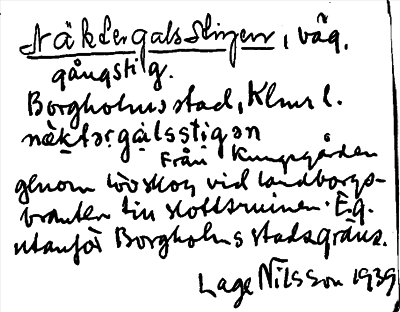 Näktergalsstigen, väg,
gångstig.
Borgholms stad, Klmr l.
näktərgàlsstigən
Från Kungsgården
genom lövskog vid landborgs-
branten till slottsruinen. Eg.
utanför Borgholms stadsgräns.
Lage Nilsson 1939